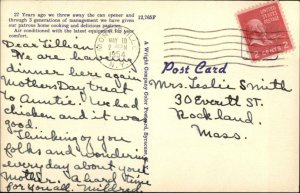 27 Years ago we threw away the can opener and
through 3 generations of management we have given
our patrons home cooking and delicious pastries.
Air conditioned with the latest equipment for your
comfort.
12,765F
Dear Lillian
We are having
dinner here again
Mothers Day treat
to Auntie. We had
chicken and it was
good.
Thinking of you
folks and wondering
every day about your
Mother. A hard time
for you all. Mildred
A Wright Company Color Postcard, Syracuse
MAY 10
PM
Post Card
2 CENTS 2
Mrs. Leslie Smith
30 Everett St.
Rockland
Mass.